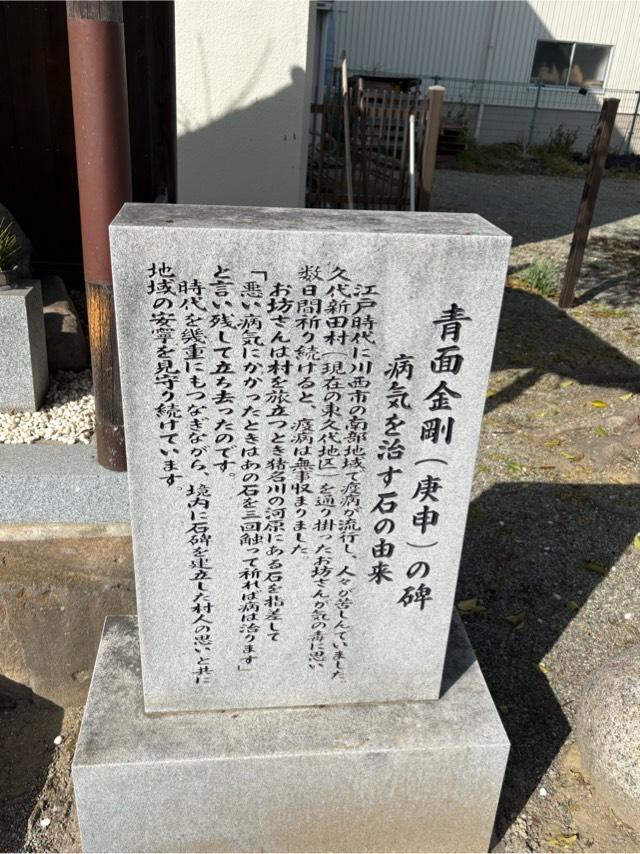 青面金剛（庚申）の碑
病気を治す石の由来
江戸時代に川西市の南部地域で疫病が流行し、人々が苦しんでいました
久代新田村（現在の東久代地区）を通り掛ったお坊さんが気の毒に思い
数日間祈り続けると、疫病は無事収まりました
お坊さんは村を旅立つとき猪名川の河原にある石を指差して
「悪い病気にかかったときはあの石を三回触って祈れば病は治ります」
と言い残して立ち去ったのです。
時代を幾重にもつなぎながら、境内に石碑を建立した村人の思いと共に
地域の安寧を見守り続けています。